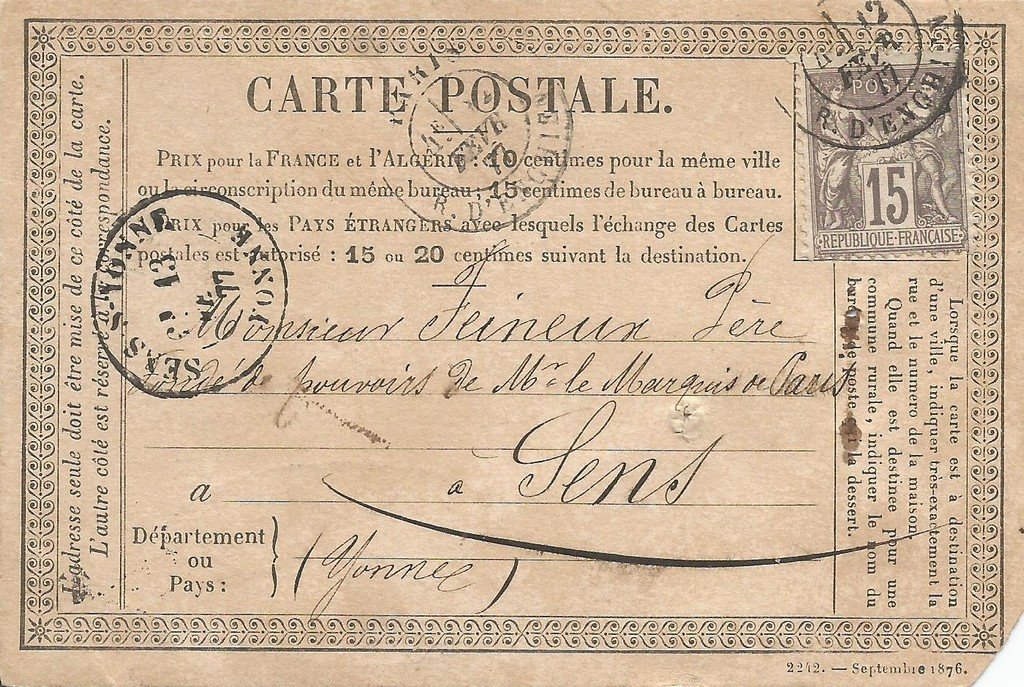 CARTE POSTALE.
PRIX pour la FRANCE et l'ALGÉRIE : 10 centimes pour la même ville
ou la circonscription du même bureau ; 15 centimes de bureau à bureau.
PRIX pour les PAYS ÉTRANGERS avec lesquels l'échange des Cartes
postales est autorisé : 15 ou 20 centimes suivant la destination.
PARIS
R. D'ENGHIEN
FEVR
12
FEVR
77
R. D'ENGHIEN
POSTES
15
RÉPUBLIQUE-FRANÇAISE
SENS-S-YONNE
YONNE
13
77
Monsieur Feineux Père
fondé de pouvoirs de Mr. le Marquis de Paris
a
à Sens
Département
ou
Pays :
(Yonne)
L'adresse seule doit être mise de ce côté de la carte.
L'autre côté est réservé à la correspondance.
Lorsque la carte est à destination
d'une ville, indiquer très-exactement la
rue et le numero de la maison.
Quand elle est destinée pour une
commune rurale, indiquer le nom du
bureau de poste qui la dessert.
2242. — Septembre 1876.